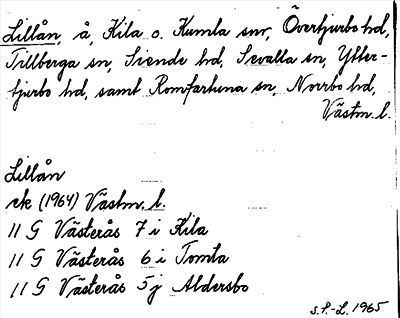 Lillån, å, Kila o. Kumla snr, Övertjurbo hd,
Tillberga sn, Siende hd, Sevalla sn, Ytter-
tjurbo hd, samt Romfartuna sn, Norrbo hd,
Västm. l.
Lillån
ek (1964) Västm. l.
11 G Västerås 7 i Kila
11 G Västerås 6 i Tomta
11 G Västerås 5 j Aldersbo
s.P.-L. 1965